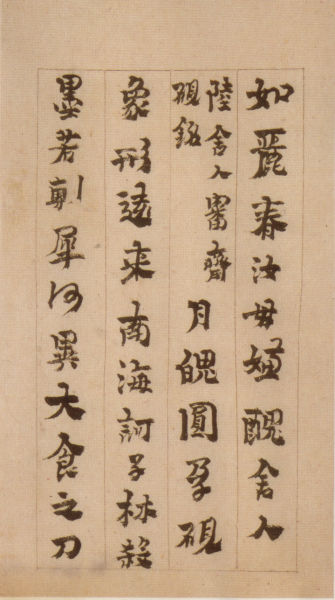 如麗春汝毋醜舍人
陸舍人審齋
硯銘
月魄圓孕硯
象形遠來南海訶子林殺
墨若剸犀何異大食之刀